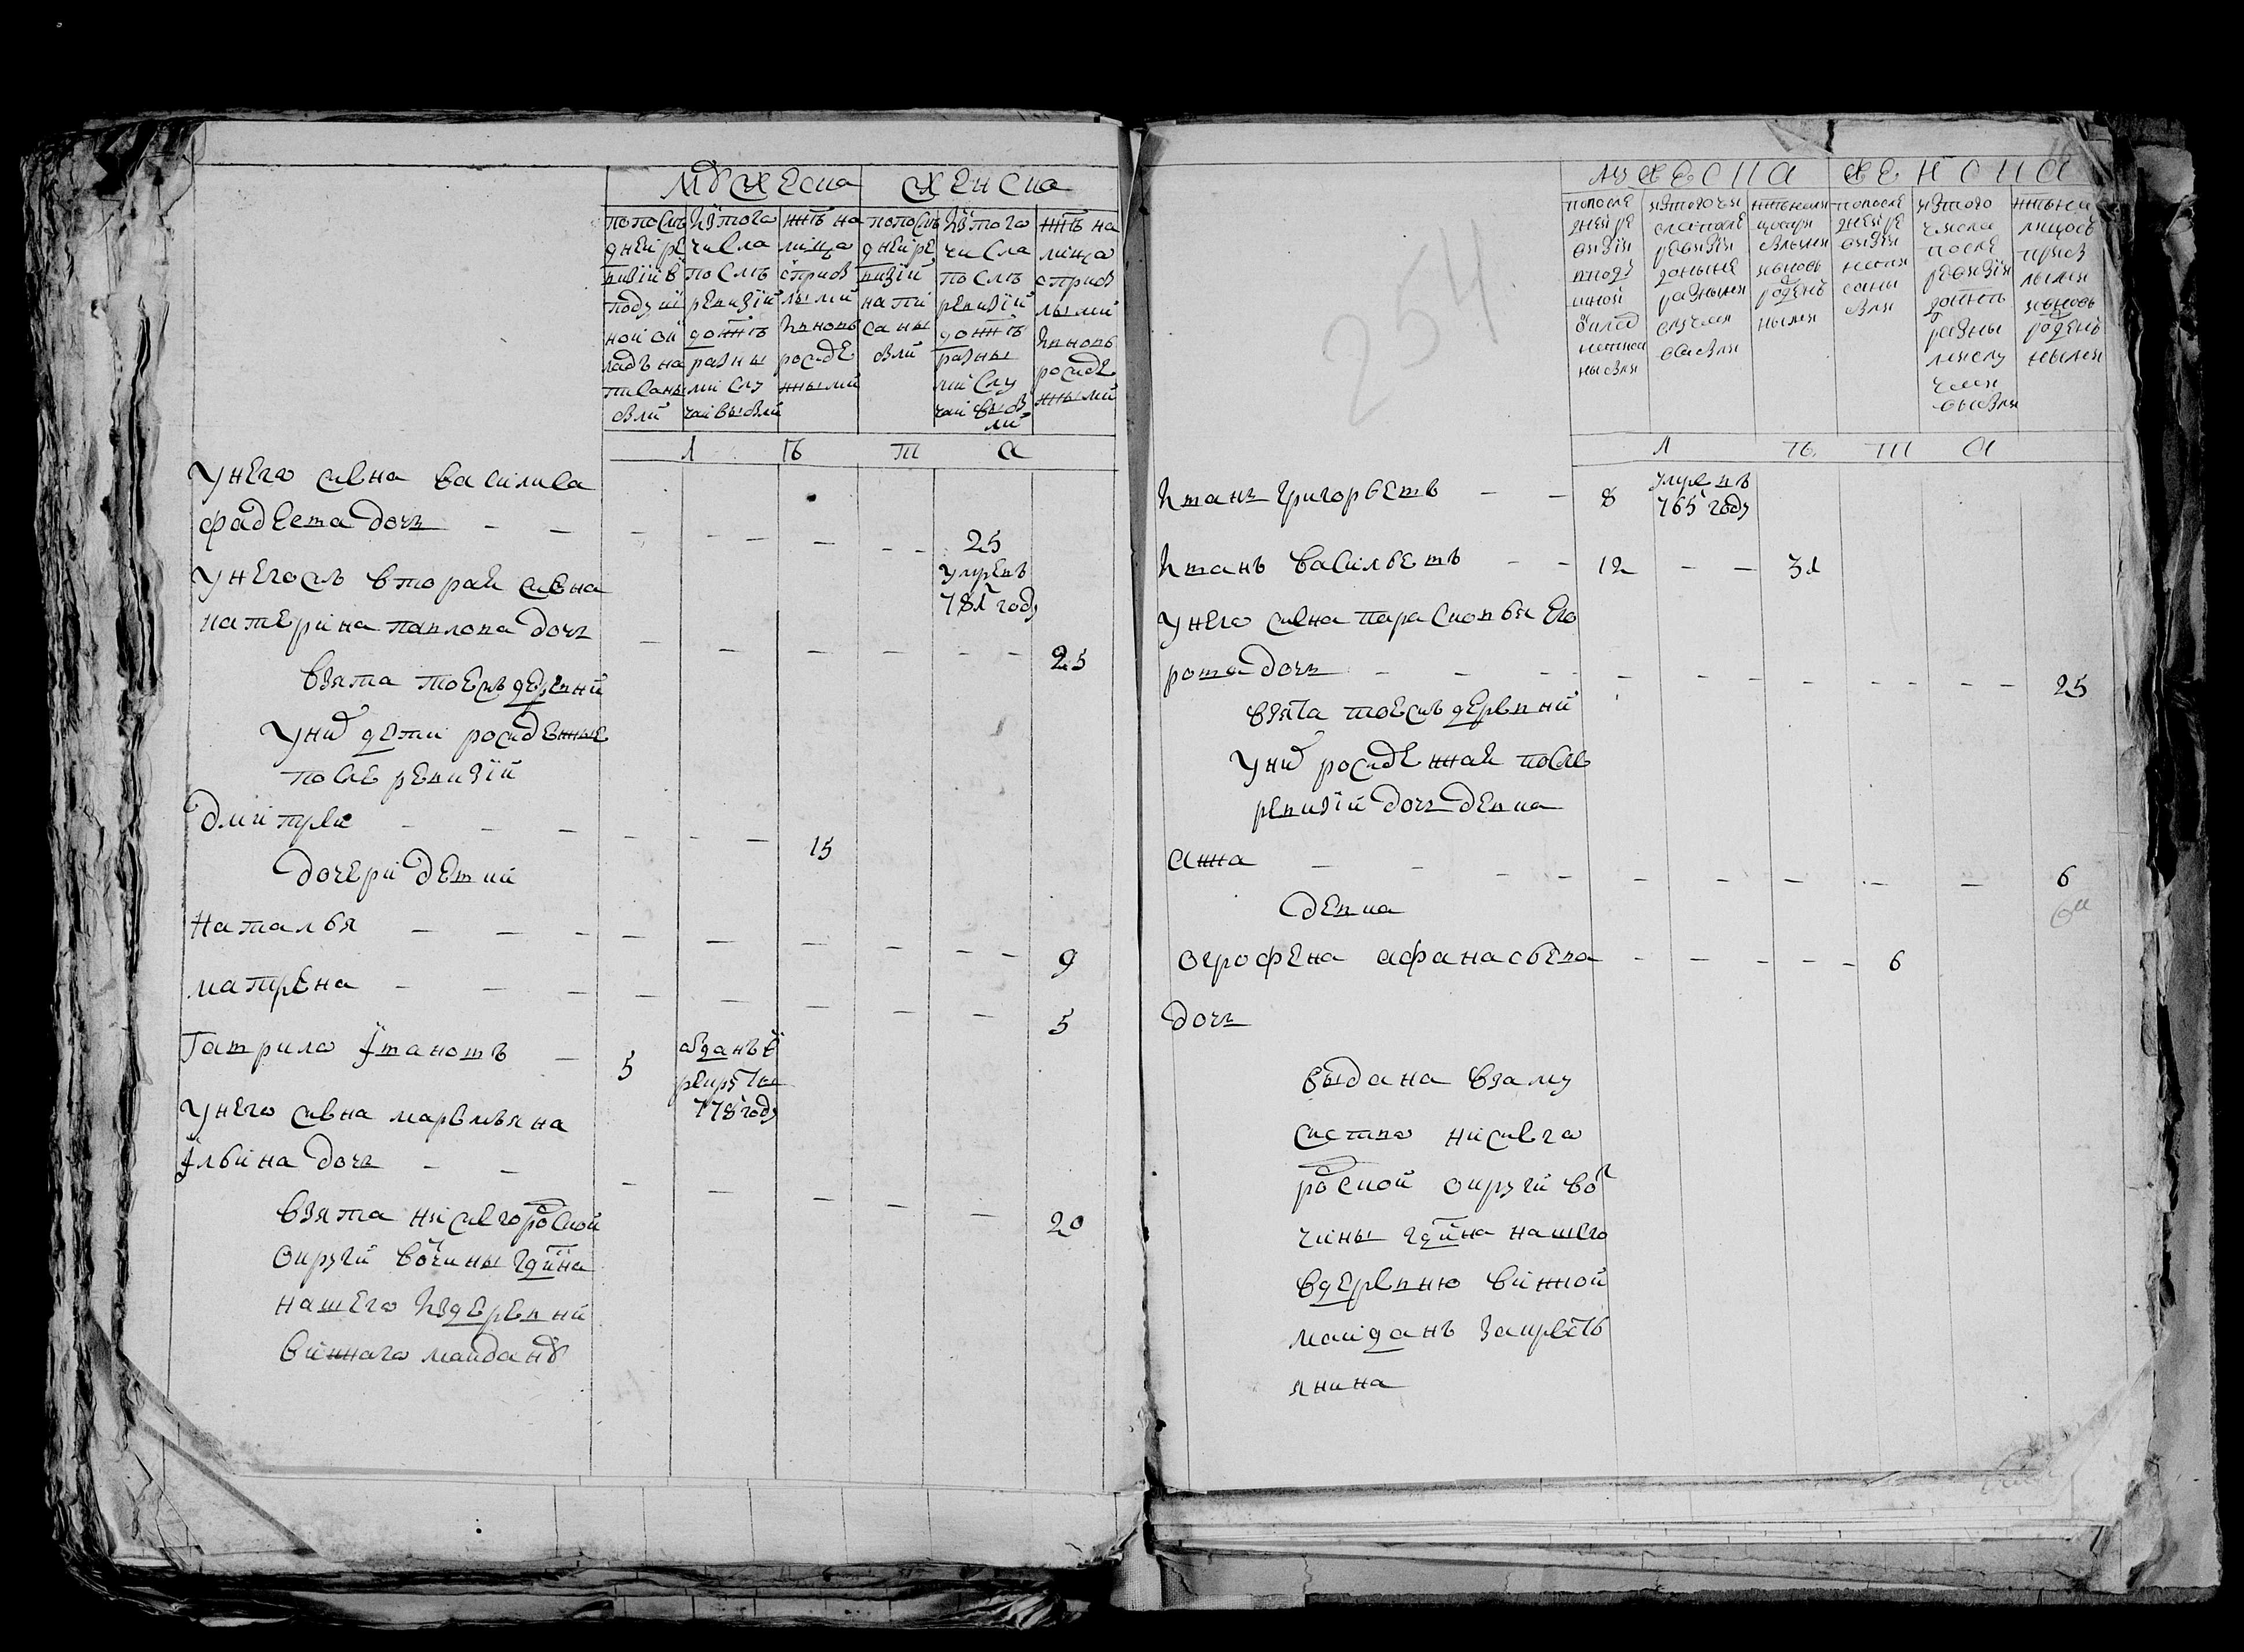 мужеска женска
попосле дней ре визіи в подуш ной ок ладъ на писаны были
изтого числа после ревизіи до нне разны ми слу чаи выбыли
нне на лицо с прибы лыми и вновь рожде нными
попосле дней ре визіи напи саны были
изтого числа после ревизіи до нне разны ми слу чаи выбы ли
нне на лицо с прибы лыми и вновь рожде нными
л ѣ т а
унего жена василиса
фадеева дочь — — 25 умре въ 781 году
унегожъ вторая жена
катерина павлова дочь 25
взята тоежъ деревни
уних дети рожденные
после ревизіи
дмитреи — — — 15
дочери девки
наталья — — — 9
матрена — — — 5
гаврила ивановъ — 5 отданъ в рекруты 778 году
унего жена маремьяна
ильина дочь — — 20
взята нижегородской
округи вотчины гдина
нашего изъ деревни
виннаго майдану
254
мужеска женска
попосле дней ре визіи вподу шной оклад написа ны были
изтого чи сла после ревизіи доныне разными случаи выбыли
нне нали цо спри былыми ивновь рожден ными
попосле дней ре визіи напи саны были
изтого числа после ревизіи доныне разны ми слу чаи выбыли
нне на лицо с прибы лыми ивновь рожден ными
л ѣ т а
иванъ григорьевъ — — 8 умре въ 765 году
иванъ васильевъ — — 12 — — 31
унего жена парасковья его
рова дочь — — — 25
взята тоежъ деревни
уних рожденная после
ревизіи дочь девка
анна — — — 6
девка
огрофена афанасьева — — — 6
дочь
выдана взаму
жство нижего
родской округи вот
чины гдина нашего
вдеревню винной
майданъ закресть
янина